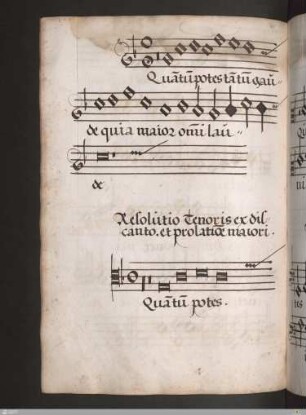 Quātū potes tātū gau=
de quia maior omī lau=
de
Resolutio Tenoris ex dis=
canto. et prolatiōe maiori.
Quātū potes.